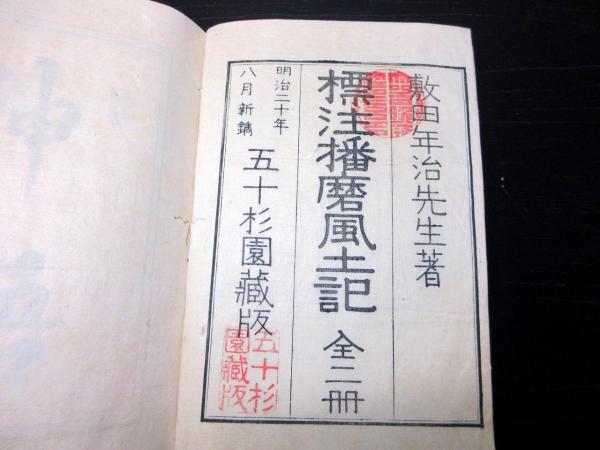 敷田年治先生著
標注播磨風土記 全二冊
明治二十年
八月新鐫
五十杉園蔵版
五十杉
園蔵版